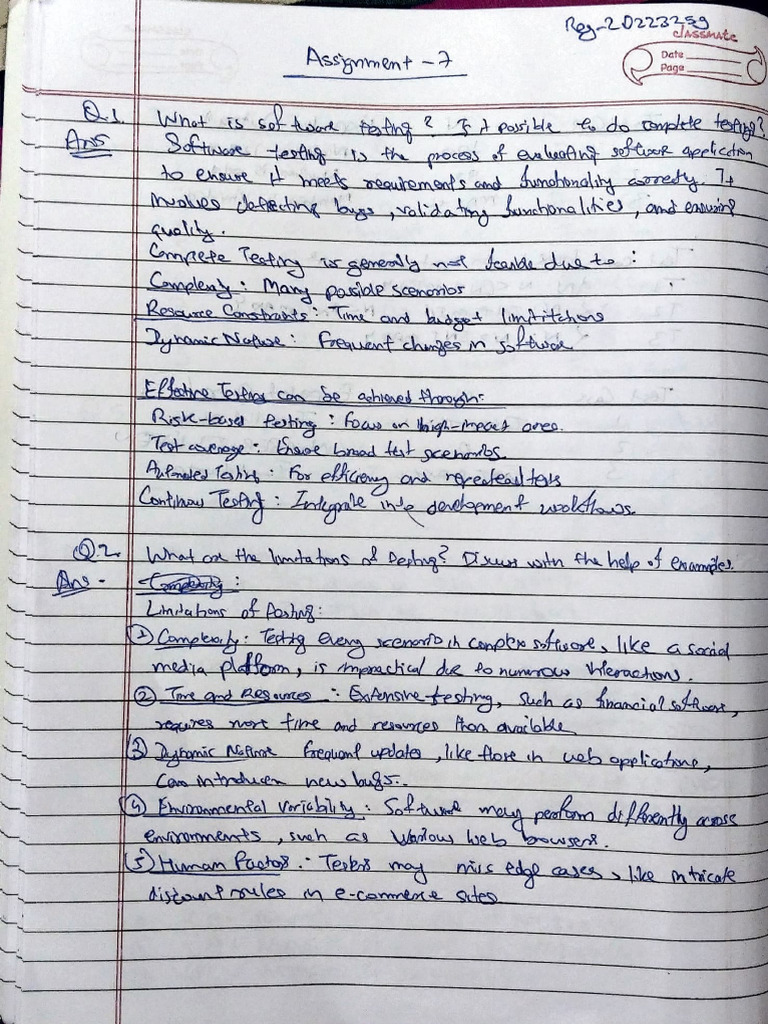 Reg-20223259
classmate
Date
Page
Assignment - 7
Q.1. What is software testing? Is it possible to do complete testing?
Ans Software testing is the process of evaluating software application
to ensure it meets requirements and functionality correctly. It
involves detecting bugs, validating functionalities, and ensuring
quality.
Complete Testing is generally not feasible due to :
Complexity : Many possible scenarios
Resource Constraints : Time and budget limititchons
Dynamic Nature : Frequent changes in software
Effective Testing can be achieved through:-
Risk-based testing : Focus on high-impact area.
Test coverage : Ensure broad test scenarios
Automated Testing : For efficiency and repeated tests
Continuous Testing : Integrate into development workflows.
Q.2. What are the limitations of testing? Discuss with the help of examples.
Ans - Complexity :
Limitations of testing:
① Complexity : Testing every scenario in complex software, like a social
media platform, is impractical due to numerous interactions.
② Time and Resources : Extensive testing, such as financial software,
requires more time and resources than available
③ Dynamic Nature Frequent updates, like those in web applications,
can introduce new bugs.
④ Environmental Variability : Software may perform differently across
environments, such as various web browsers.
⑤ Human Factor : Testers may miss edge cases, like intricate
discount rules in e-commerce sites